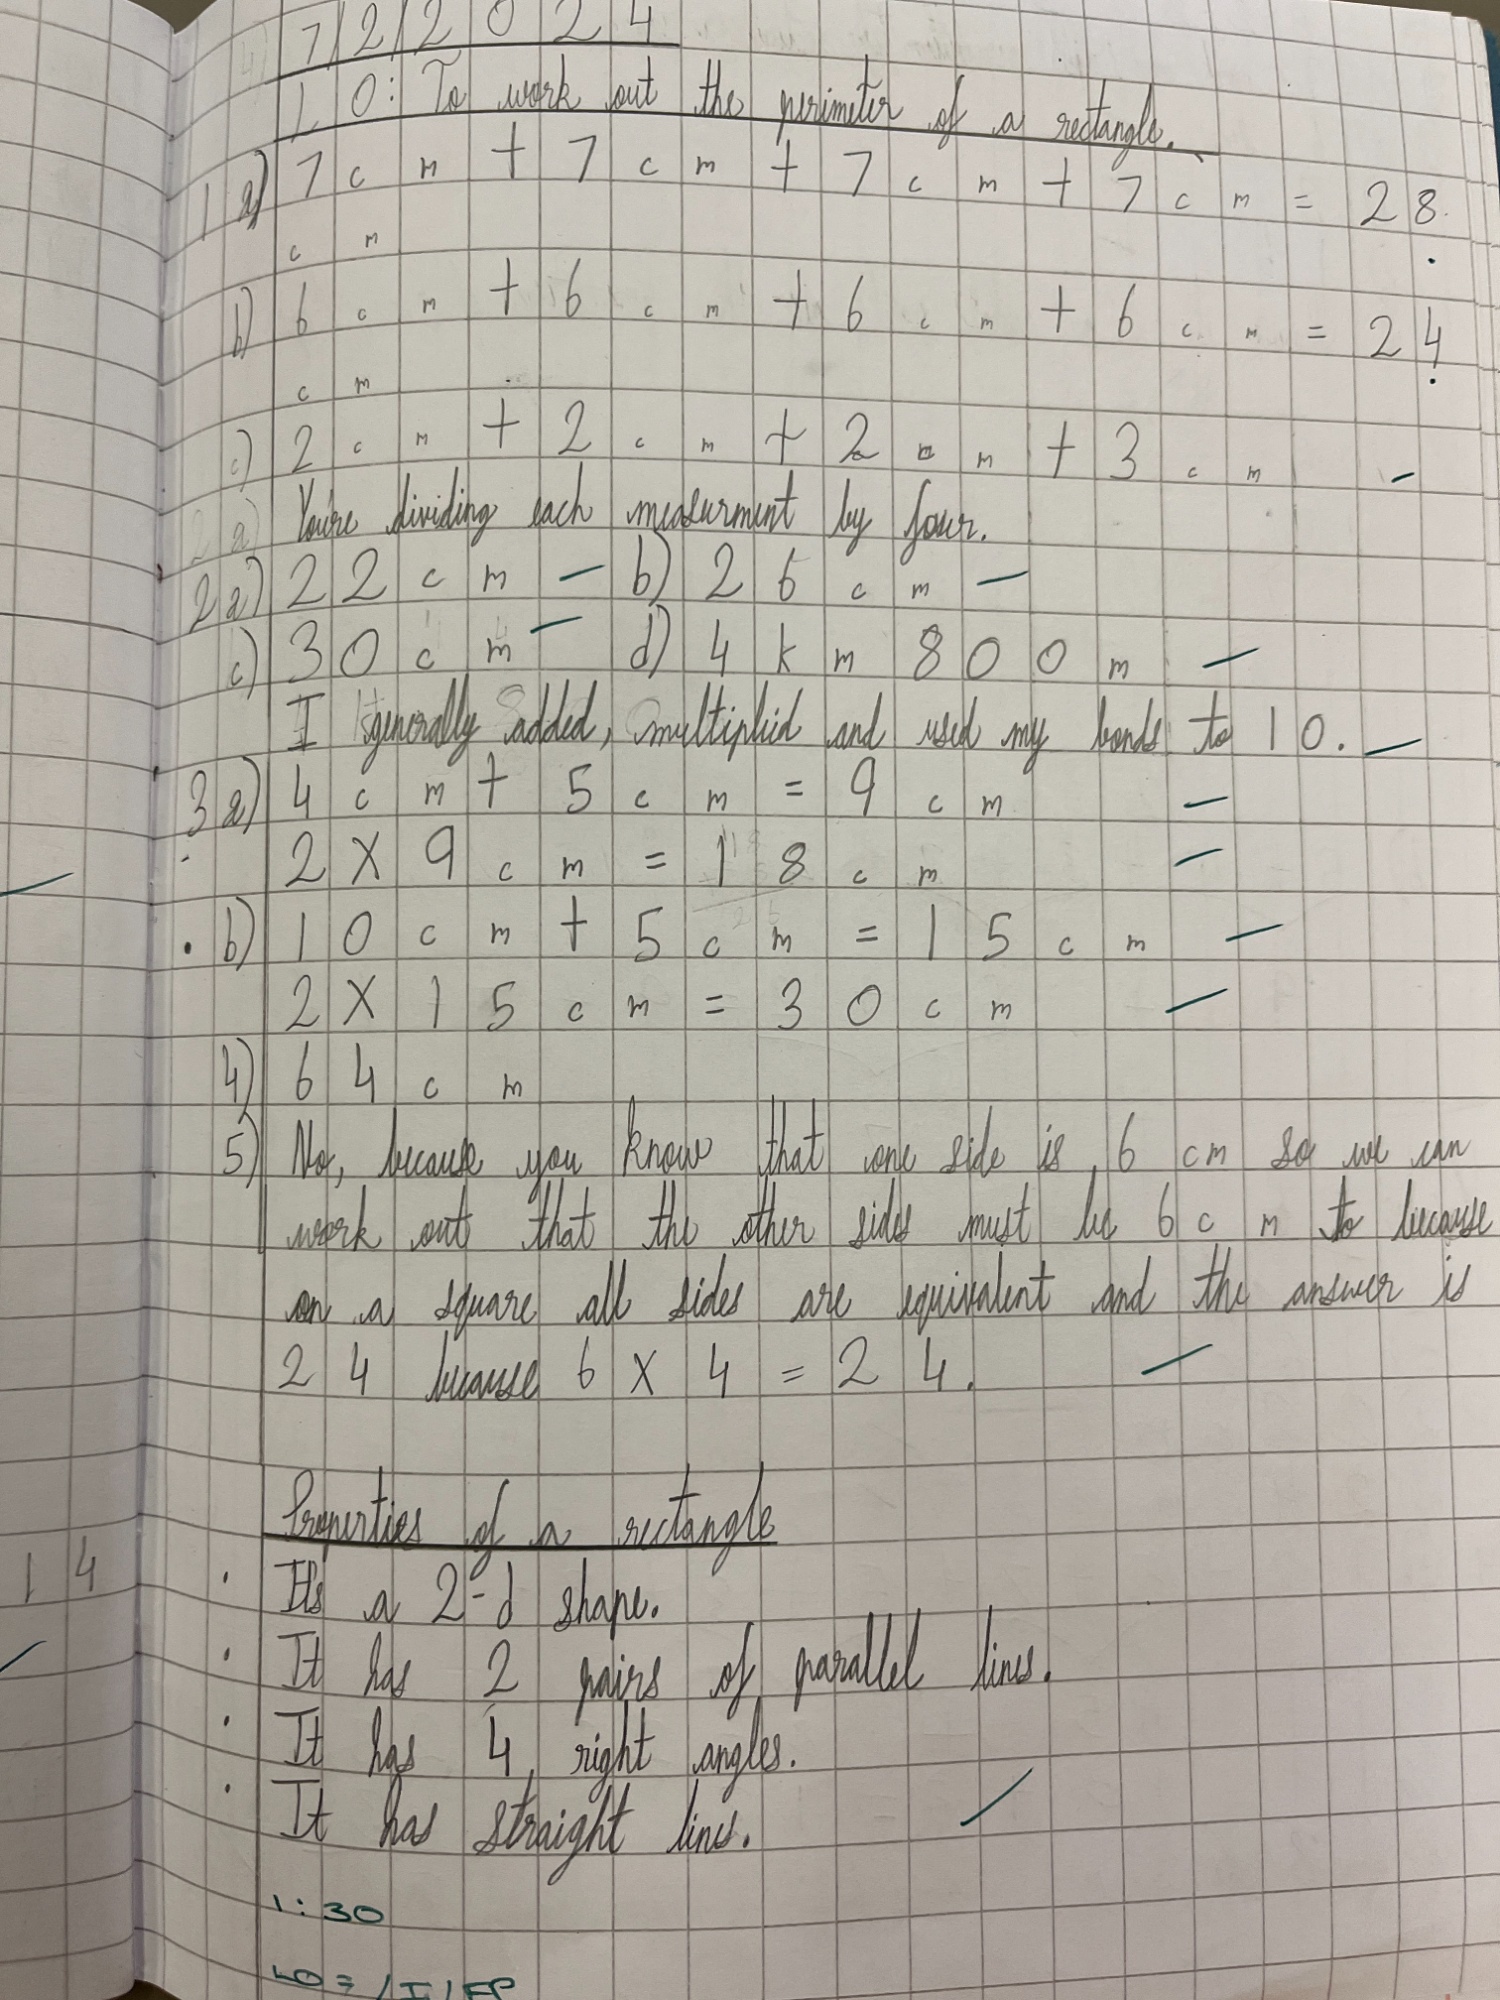 7/2/2024
LO: To work out the perimeter of a rectangle.
1a) 7cm + 7cm + 7cm + 7cm = 28
cm
b) 6cm + 6cm + 6cm + 6cm = 24
cm
c) 2cm + 2cm + 2cm + 3cm
You're dividing each measurment by four.
2a) 22cm b) 26cm
c) 30cm d) 4km 800m
I generally added, multiplid and used my bonds to 10.
3a) 4cm + 5cm = 9cm
2 X 9cm = 18cm
b) 10cm + 5cm = 15cm
2 X 15cm = 30cm
4) 64cm
5) No, because you know that one side is 6cm so we can
work out that the other sides must be 6cm to because
on a square all sides are equivalent and the answer is
24 because 6 X 4 = 24.
Properties of a rectangle
• It's a 2-d shape.
• It has 2 pairs of parallel lines.
• It has 4 right angles.
• It has straight lines.
14
1:30
LO = /I/FP